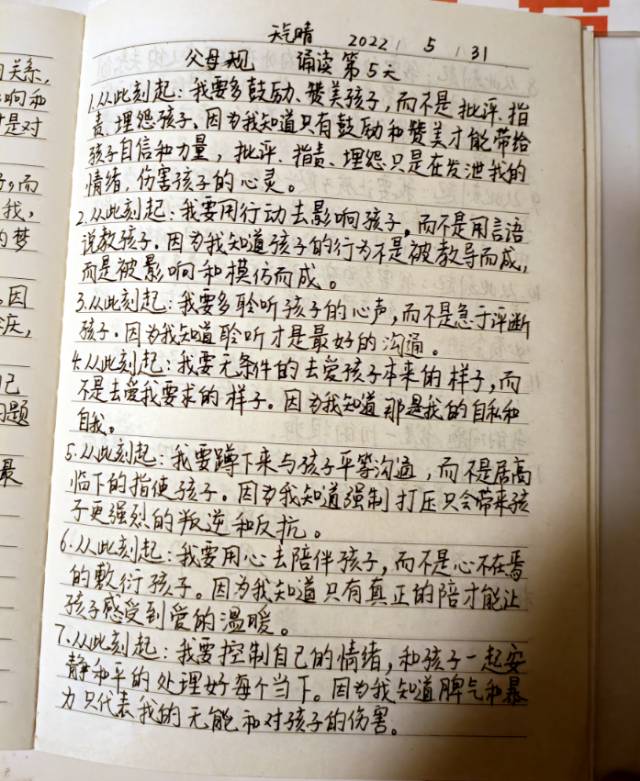 关系,
响和
是对
而
我,
梦
因
己
题
最
天气晴 2022 / 5 / 31
父母规 诵读第5天
1.从此刻起:我要多鼓励、赞美孩子,而不是批评.指
责.埋怨孩子.因为我知道只有鼓励和赞美才能带给
孩子自信和力量,批评.指责.埋怨只是在发泄我的
情绪,伤害孩子的心灵。
2.从此刻起:我要用行动去影响孩子,而不是用言语
说教孩子.因为我知道孩子的行为不是被教导而成,
而是被影响和模仿而成。
3.从此刻起:我要多聆听孩子的心声,而不是急于评断
孩子.因为我知道聆听才是最好的沟通。
4.从此刻起:我要无条件的去爱孩子本来的样子,而
不是去爱我要求的样子。因为我知道那是我的自私和
自我。
5.从此刻起:我要蹲下来与孩子平等沟通,而不是居高
临下的指使孩子。因为我知道强制打压只会带来孩
子更强烈的叛逆和反抗。
6.从此刻起:我要用心去陪伴孩子,而不是心不在焉
的敷衍孩子。因为我知道只有真正的陪才能让
孩子感受到爱的温暖。
7.从此刻起:我要控制自己的情绪,和孩子一起安
静和平的处理好每个当下。因为我知道脾气和暴
力只代表我的无能和对孩子的伤害。